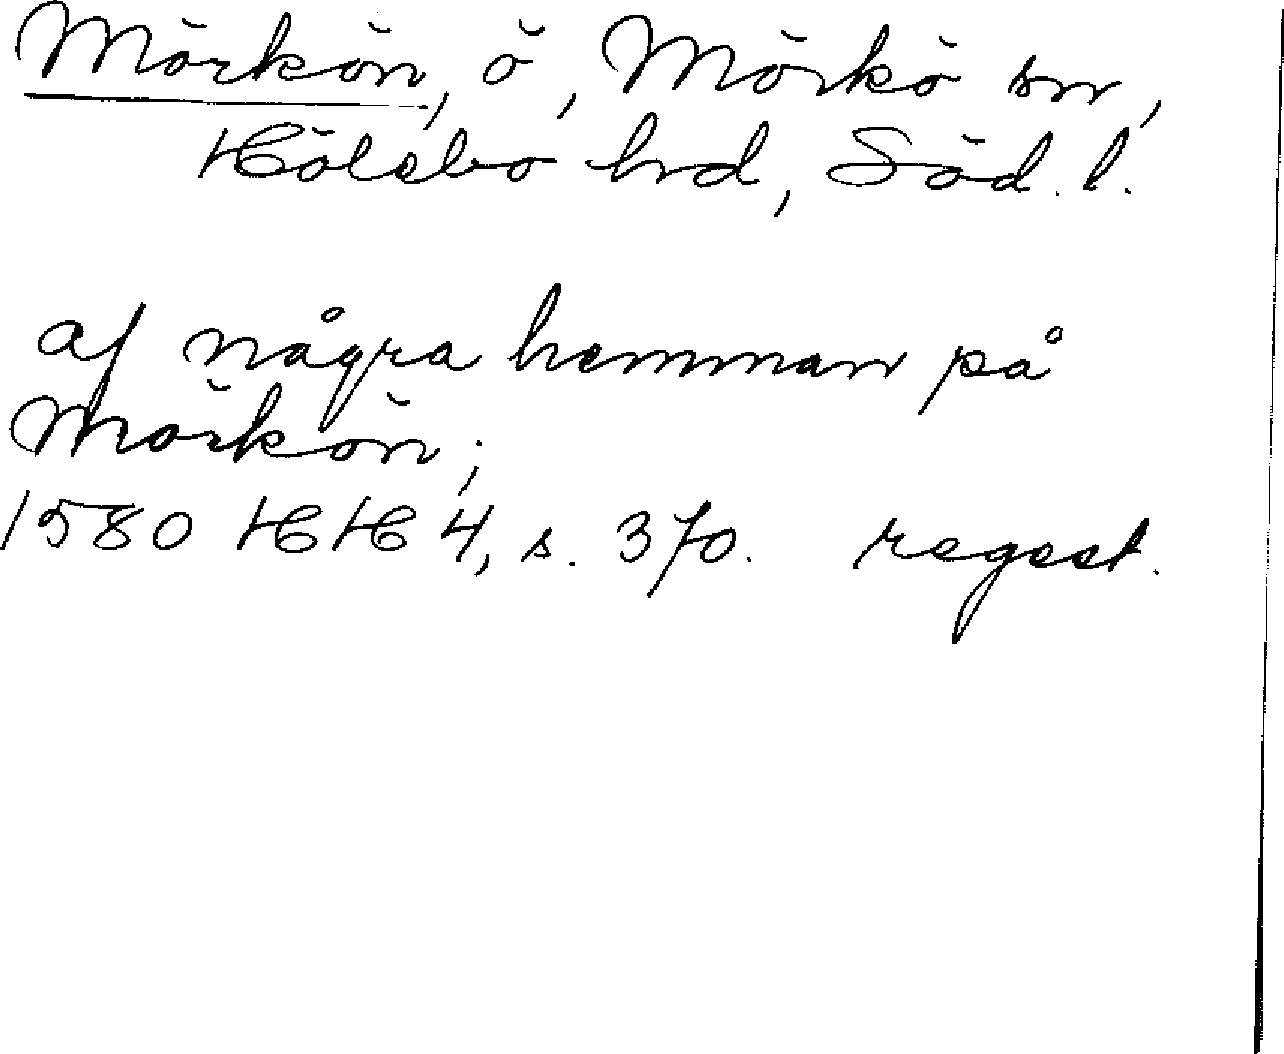 Mörkön, ö, Mörkö sn,
Hölebo hrd, Söd. l.
af några hemman på
Mörkön;
1580 HH 4, s. 370. regest.